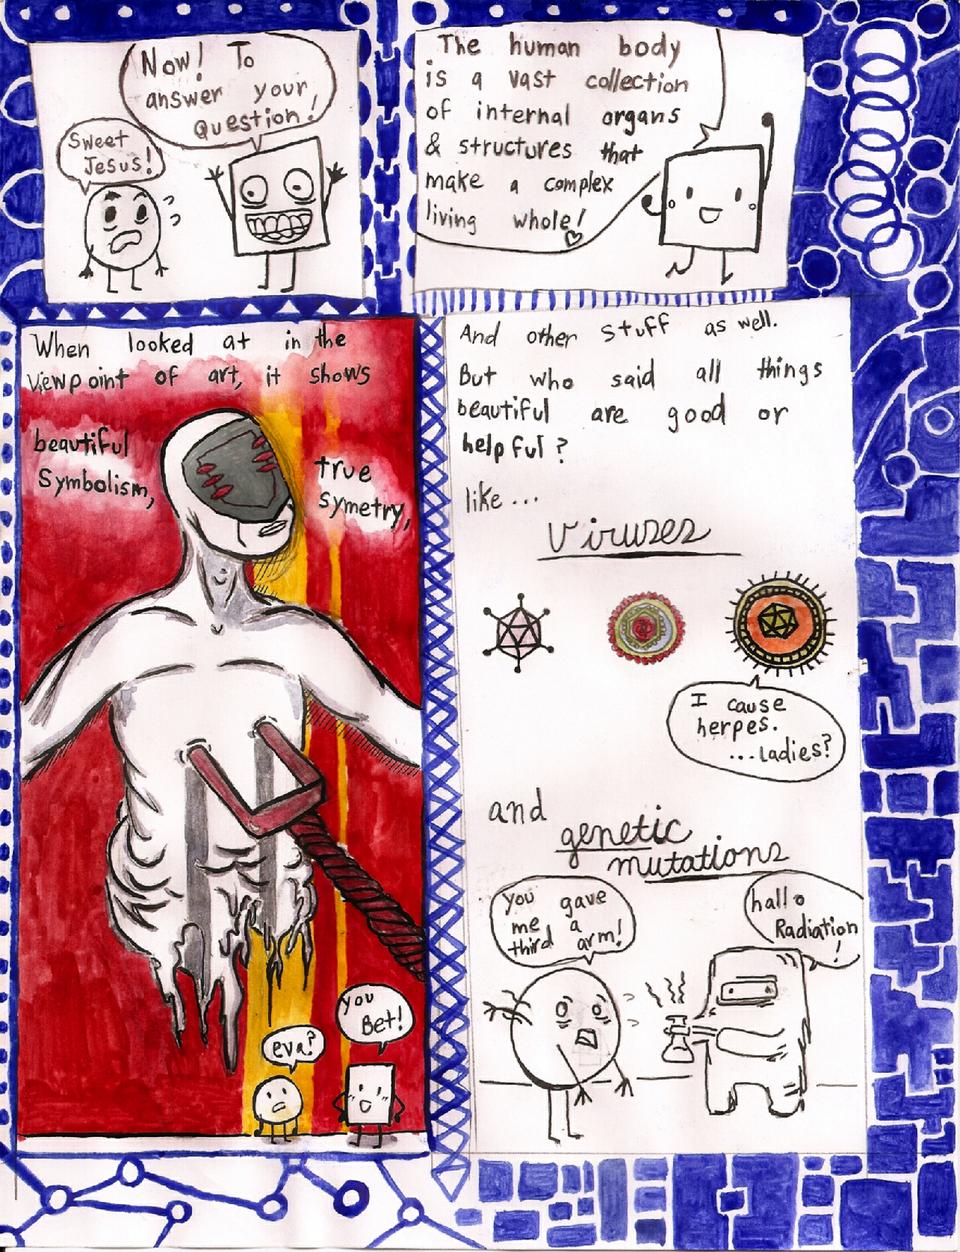 Now! To
answer your
Question!
Sweet
Jesus!
The human body
is a vast collection
of internal organs
& structures that
make a complex
living whole!
When looked at in the
viewpoint of art, it shows
beautiful
Symbolism,
true
symetry,
eva?
you
Bet!
And other stuff as well.
But who said all things
beautiful are good or
helpful?
like...
Viruses
I cause
herpes.
...Ladies?
and
genetic
mutations
you gave
me a
third arm!
hallo
Radiation
!